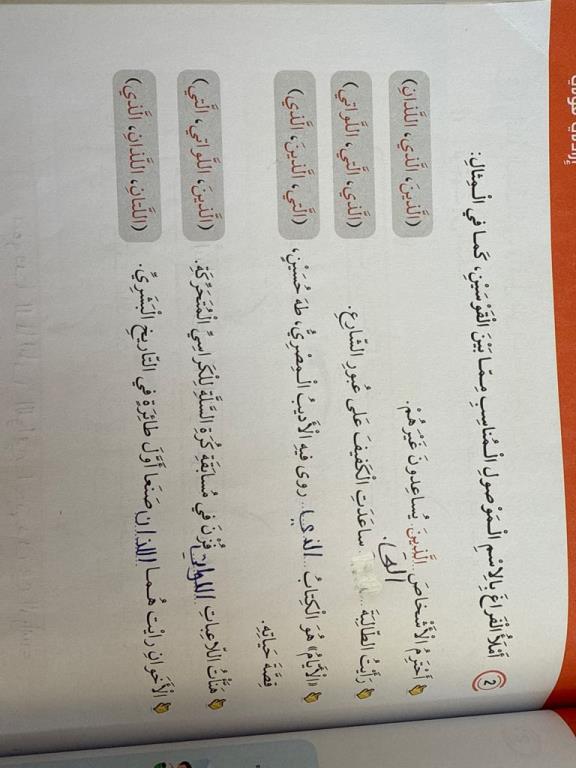 2 أَمْلَأُ الْفَراغَ بِالِاسْمِ الْمَوْصولِ الْمُناسِبِ مِمّا بَيْنَ الْقَوْسَيْنِ، كَما في الْمِثالِ:
أَحْتَرِمُ الْأَشْخاصَ ..الَّذينَ.. يُساعِدونَ غَيْرَهُمْ. (الَّذينَ، الَّذي، اللَّذانِ)
رَأَيْتُ الطّالِبَةَ ... التي ساعَدَتِ الْكَفيفَ عَلى عُبورِ الشّارِعِ. (الَّذي، الَّتي، اللَّواتي)
«الْأَيّامُ» هُوَ الْكِتابُ ..الذي.. رَوى فيهِ الْأَديبُ الْمِصْرِيُّ، طهَ حُسَيْن، (الَّتي، الَّذينَ، الَّذي)
قِصَّةَ حَياتِهِ.
هَنَّأْتُ اللّاعِباتِ اللواتي فُزْنَ في مُسابَقَةِ كُرَةِ السَّلَّةِ لِلْكَراسِيِّ الْمُتَحَرِّكَةِ. (الَّذينَ، اللَّواتي، الَّتي)
الْأَخَوانِ رايْت هُما اللذان صَنَعا أَوَّلَ طائِرَةٍ في التّاريخِ الْبَشَرِيِّ. (اللَّتانِ، اللَّذانِ، الَّذي)